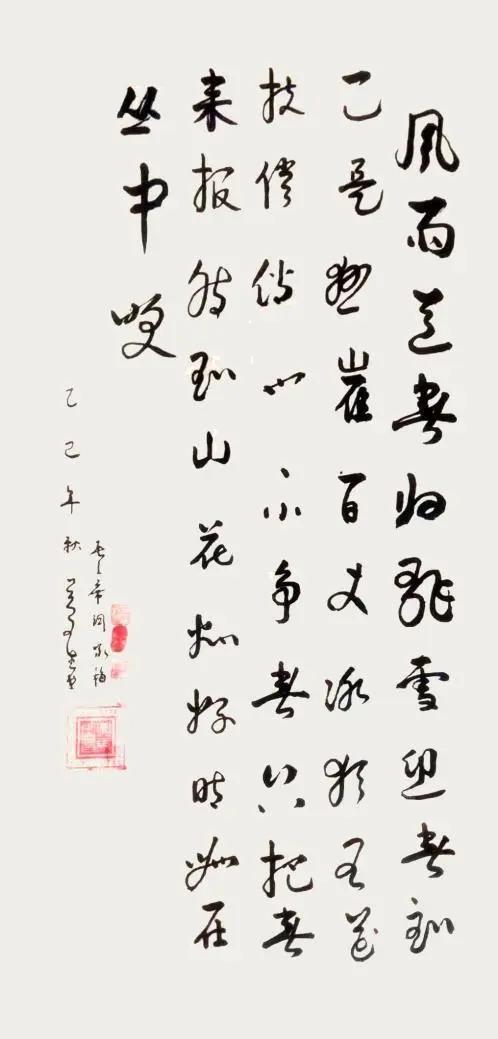 风雨送春归飛雪迎春到
已是悬崖百丈冰犹有花
枝俏俏也不争春只把春
来报待到山花烂漫时她在
丛中笑
乙巳年秋